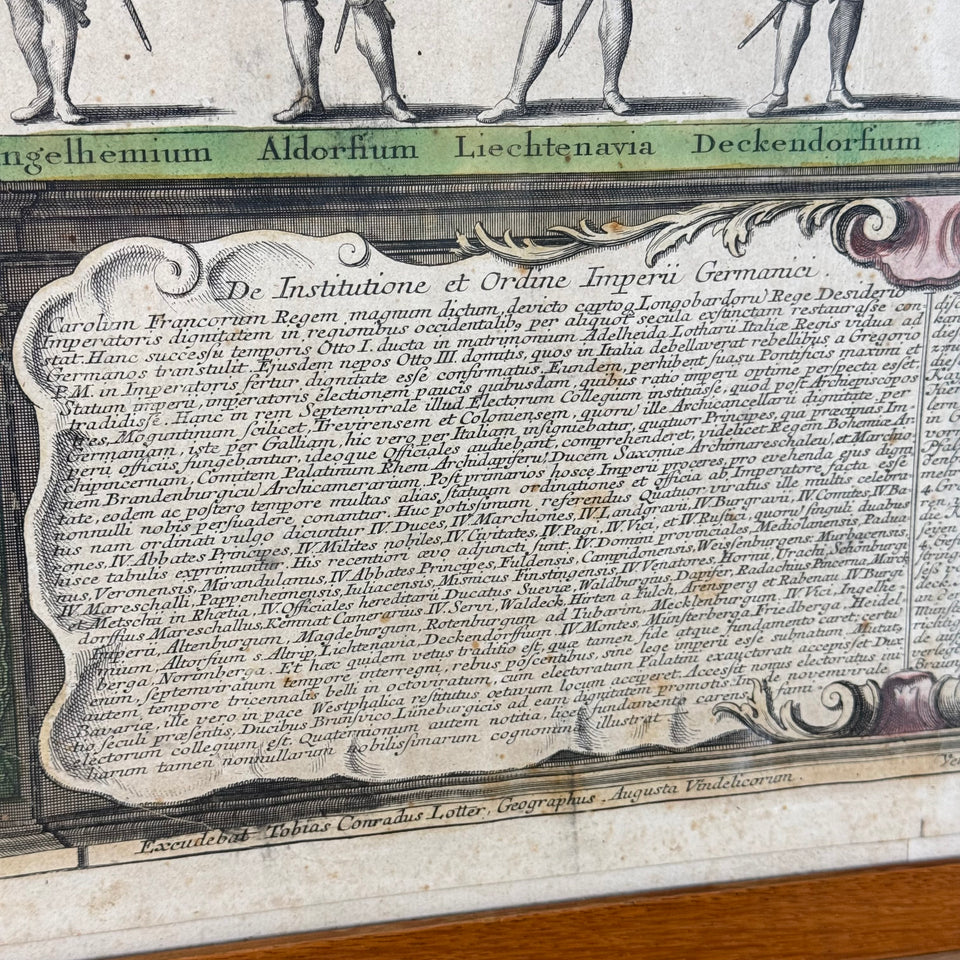 ngelhemium Aldorfium Liechtenavia Deckendorfium
De Institutione et Ordine Imperii Germanici.
Carolum Francorum Regem, magnum dictum, devicto captoq Longobardorū Rege Desiderio
Imperatoris dignitatem in regionibus occidentalib, per aliquot secula exstinctam restaurasse con
stat. Hanc successu temporis Otto I. ducta in matrimonium Adelheida Lotharii Italiæ Regis vidua ad
Germanos transtulit. Ejusdem nepos Otto III. domitis, quos in Italia debellaverat rebellibus a Gregorio
P.M. in Imperatoris fertur dignitate esse confirmatus. Eundem, perhibent suasu Pontificis maximi et
Statum imperii, imperatoris electionem paucis quibusdam, quibus ratio imperii optime perspecta esset
tradidisse. Hanc in rem Septemvirale illud Electorum Collegium instituisse, quod post Archiepiscopos
tres, Moguntinum scilicet, Trevirensem et Coloniensem, quorū ille Archicancellarii dignitate per
Germaniam, iste per Galliam, hic vero per Italiam insigniebatur, quatuor Principes, qui præcipuis Im-
perii officiis fungebantur, ideoque Officiales audiebant, comprehenderet, videlicet Regem Bohemiæ Ar-
chipincernam, Comitem Palatinum Rheni Archidapiferū, Ducem Saxoniæ Archimareschaleū, et Marchio-
nem Brandenburgicū Archicamerarium. Post primarios hosce Imperii proceres, pro evehenda ejus digni
tate, eodem ac postero tempore multas alias statuum ordinationes et officia ab Imperatore facta esse
nonnulli nobis persuadere conantur. Huc potissimum referendus Quatuorviratus ille multis celebra-
tus nam ordinati vulgo dicuntur IV. Duces, IV. Marchiones, IV. Landgravii, IV. Burgravii, IV. Comites, IV. Ba-
rones, IV. Abbates Principes, IV. Milites nobiles, IV. Civitates, IV. Pagi, IV. Vici, et IV. Rustici, quorū singuli duabus
hisce tabulis exprimuntur. His recentiori ævo adjuncti sunt, IV. Domini provinciales Mediolanensis, Padua
nus, Veronensis, Mirandulanus, IV. Abbates Principes, Fuldensis, Campidonensis, Weissenburgens: Murbacensis,
IV. Mareschalli, Pappenheimensis, Iuliacensis, Misnicus Finstingensis, IV. Venatores, Hornii, Urachi, Schönburgi
et Metschii in Rhætia, IV. Officiales hereditarii Ducatus Sueviæ, Waldburgius, Dapifer, Radachius Pincerna, Marck
dorffius Mareschallus, Kemnat Camerarius, IV. Servi, Waldeck, Hirten a Fulch, Arensperg et Rabenau, IV. Burgi
Imperii, Altenburgum, Magdeburgum, Rotenburgum ad Tubarim, Mecklenburgum, IV. Vici, Ingelhe
mium, Altorfium s. Altrip, Lichtenavia, Deckendorffium, IV. Montes, Münsterberga, Friedberga, Heidel
berga, Norimberga. Et hæc quidem vetus traditio est, quæ tamen fide atque fundamento caret: certu
enim, septemviratum tempore interregni, rebus poscentibus, sine lege imperii esse subnatum. Mutat
autem tempore tricennalis belli in octoviratum, cum electoratum Palatini exauctorat accepisset Dux
Bavariæ, ille vero in pace Westphalica restitutus octavum locum acciperet. Accessit nonus electoratus ini
tio seculi præsentis, Ducibus Brunsvico Lüneburgicis ad eam dignitatem promotis. Inde novemvirale
electorum collegium est. Quaternionum autem notitia, licet fundamento carens, fami
liarum tamen nonnullarum nobilissimarum cognomine illustrat
Excudebat Tobias Conradus Lotter, Geographus, Augusta Vindelicorum.